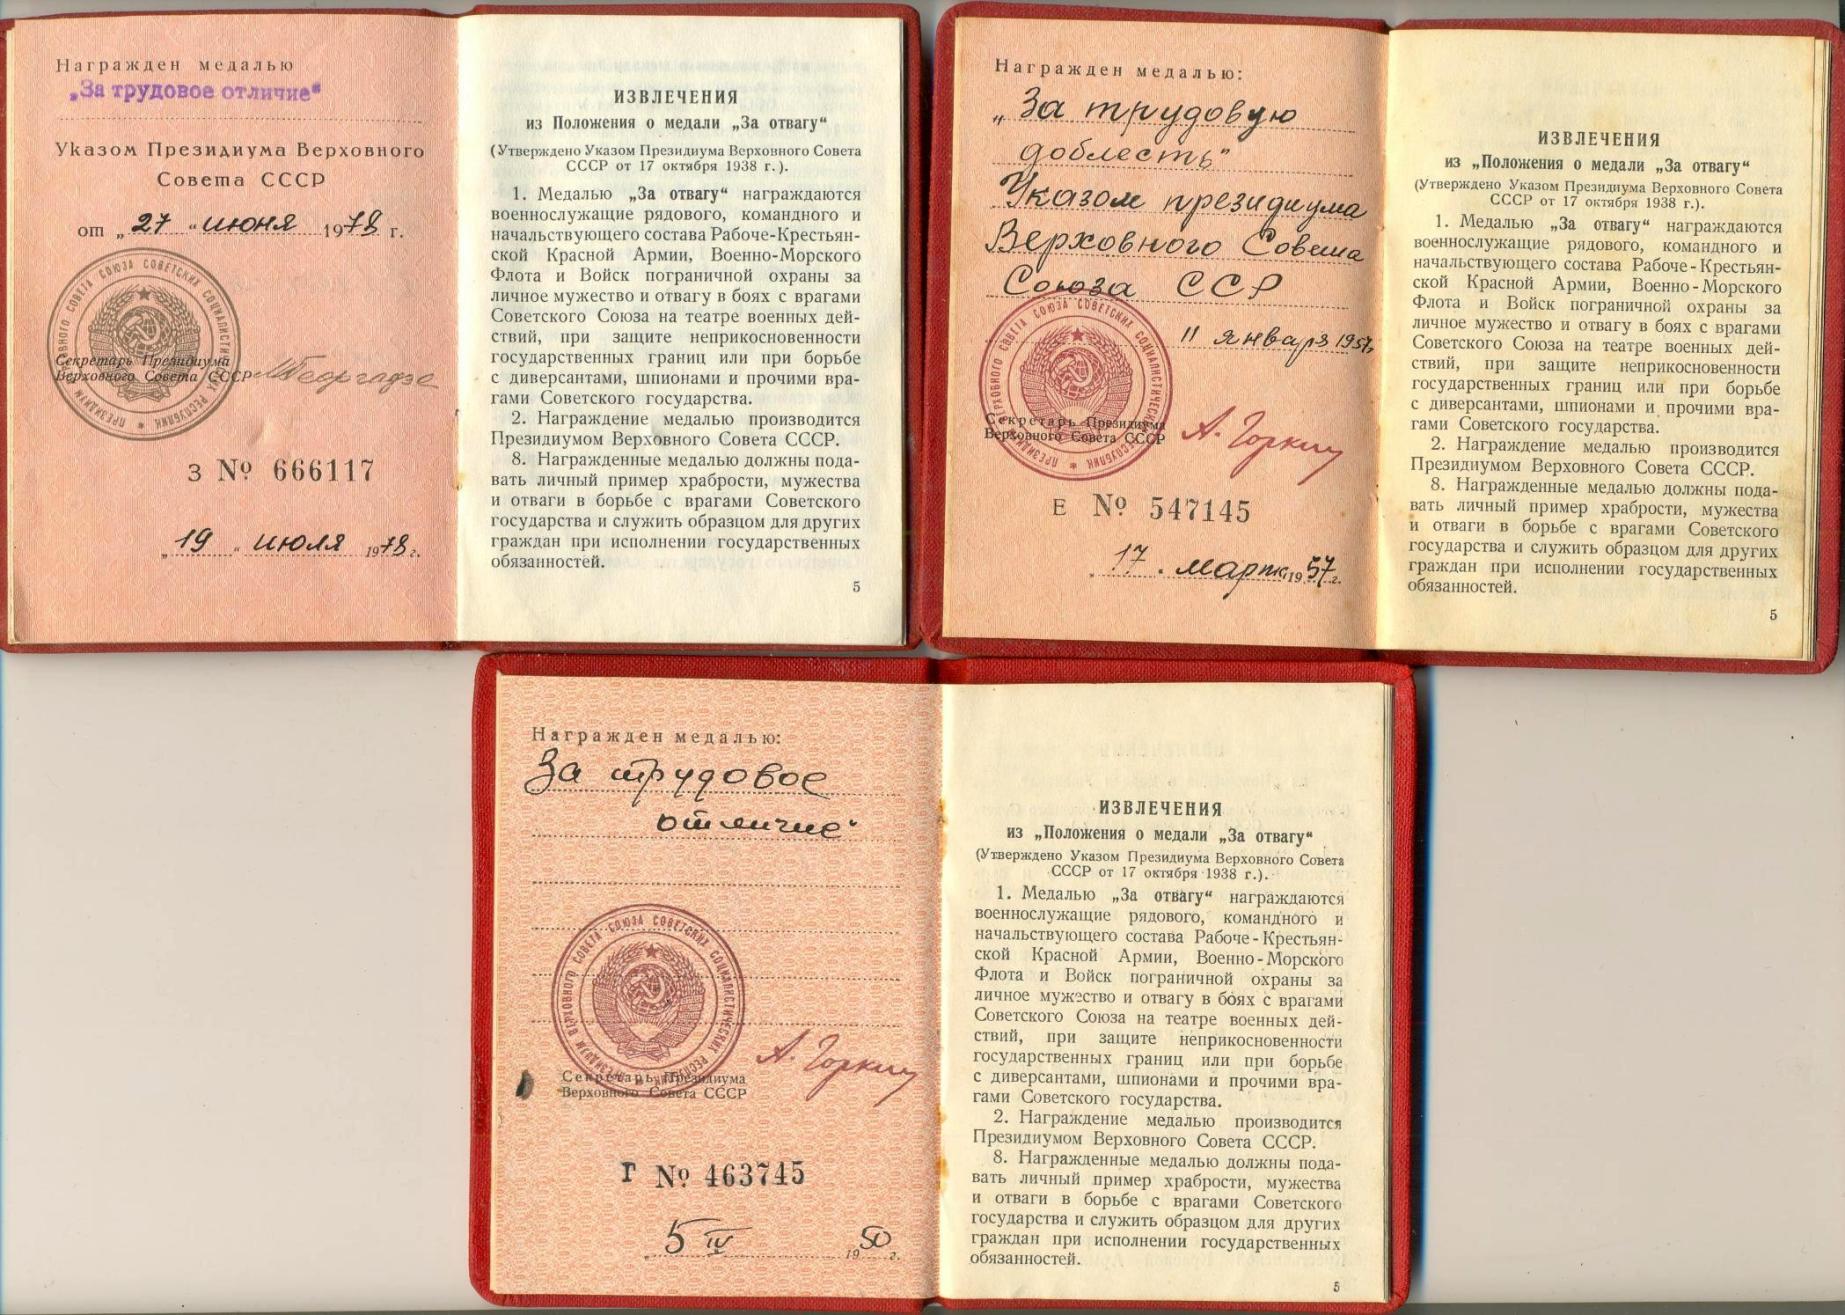 Награжден медалью
„За трудовое отличие“
Указом Президиума Верховного
Совета СССР
от „27“ июня 1978 г.
ПРЕЗИДИУМ ВЕРХОВНОГО СОВЕТА СОЮЗА СОВЕТСКИХ СОЦИАЛИСТИЧЕСКИХ РЕСПУБЛИК
Секретарь Президиума
Верховного Совета СССР
М Георгадзе
З № 666117
„19“ июля 1978 г.
ИЗВЛЕЧЕНИЯ
из Положения о медали „За отвагу“
(Утверждено Указом Президиума Верховного Совета
СССР от 17 октября 1938 г.).
1. Медалью „За отвагу“ награждаются
военнослужащие рядового, командного и
начальствующего состава Рабоче-Крестьян-
ской Красной Армии, Военно-Морского
Флота и Войск пограничной охраны за
личное мужество и отвагу в боях с врагами
Советского Союза на театре военных дей-
ствий, при защите неприкосновенности
государственных границ или при борьбе
с диверсантами, шпионами и прочими вра-
гами Советского государства.
2. Награждение медалью производится
Президиумом Верховного Совета СССР.
8. Награжденные медалью должны пода-
вать личный пример храбрости, мужества
и отваги в борьбе с врагами Советского
государства и служить образцом для других
граждан при исполнении государственных
обязанностей.
5
Награжден медалью:
„За трудовую
доблесть“
Указом президиума
Верховного Совета
Союза ССР
11 января 1957 г.
ПРЕЗИДИУМ ВЕРХОВНОГО СОВЕТА СОЮЗА СОВЕТСКИХ СОЦИАЛИСТИЧЕСКИХ РЕСПУБЛИК
Секретарь Президиума
Верховного Совета СССР
А. Горкин
Е № 547145
„17. марта 1957 г.
ИЗВЛЕЧЕНИЯ
из „Положения о медали „За отвагу“
(Утверждено Указом Президиума Верховного Совета
СССР от 17 октября 1938 г.).
1. Медалью „За отвагу“ награждаются
военнослужащие рядового, командного и
начальствующего состава Рабоче-Крестьян-
ской Красной Армии, Военно-Морского
Флота и Войск пограничной охраны за
личное мужество и отвагу в боях с врагами
Советского Союза на театре военных дей-
ствий, при защите неприкосновенности
государственных границ или при борьбе
с диверсантами, шпионами и прочими вра-
гами Советского государства.
2. Награждение медалью производится
Президиумом Верховного Совета СССР.
8. Награжденные медалью должны пода-
вать личный пример храбрости, мужества
и отваги в борьбе с врагами Советского
государства и служить образцом для других
граждан при исполнении государственных
обязанностей.
5
Награжден медалью:
За трудовое
отличие“
ПРЕЗИДИУМ ВЕРХОВНОГО СОВЕТА СОЮЗА СОВЕТСКИХ СОЦИАЛИСТИЧЕСКИХ РЕСПУБЛИК
Секретарь Президиума
Верховного Совета СССР
А. Горкин
Г № 463745
„5 IV 1950 г.
ИЗВЛЕЧЕНИЯ
из „Положения о медали „За отвагу“
(Утверждено Указом Президиума Верховного Совета
СССР от 17 октября 1938 г.).
1. Медалью „За отвагу“ награждаются
военнослужащие рядового, командного и
начальствующего состава Рабоче-Крестьян-
ской Красной Армии, Военно-Морского
Флота и Войск пограничной охраны за
личное мужество и отвагу в боях с врагами
Советского Союза на театре военных дей-
ствий, при защите неприкосновенности
государственных границ или при борьбе
с диверсантами, шпионами и прочими вра-
гами Советского государства.
2. Награждение медалью производится
Президиумом Верховного Совета СССР.
8. Награжденные медалью должны пода-
вать личный пример храбрости, мужества
и отваги в борьбе с врагами Советского
государства и служить образцом для других
граждан при исполнении государственных
обязанностей.
5